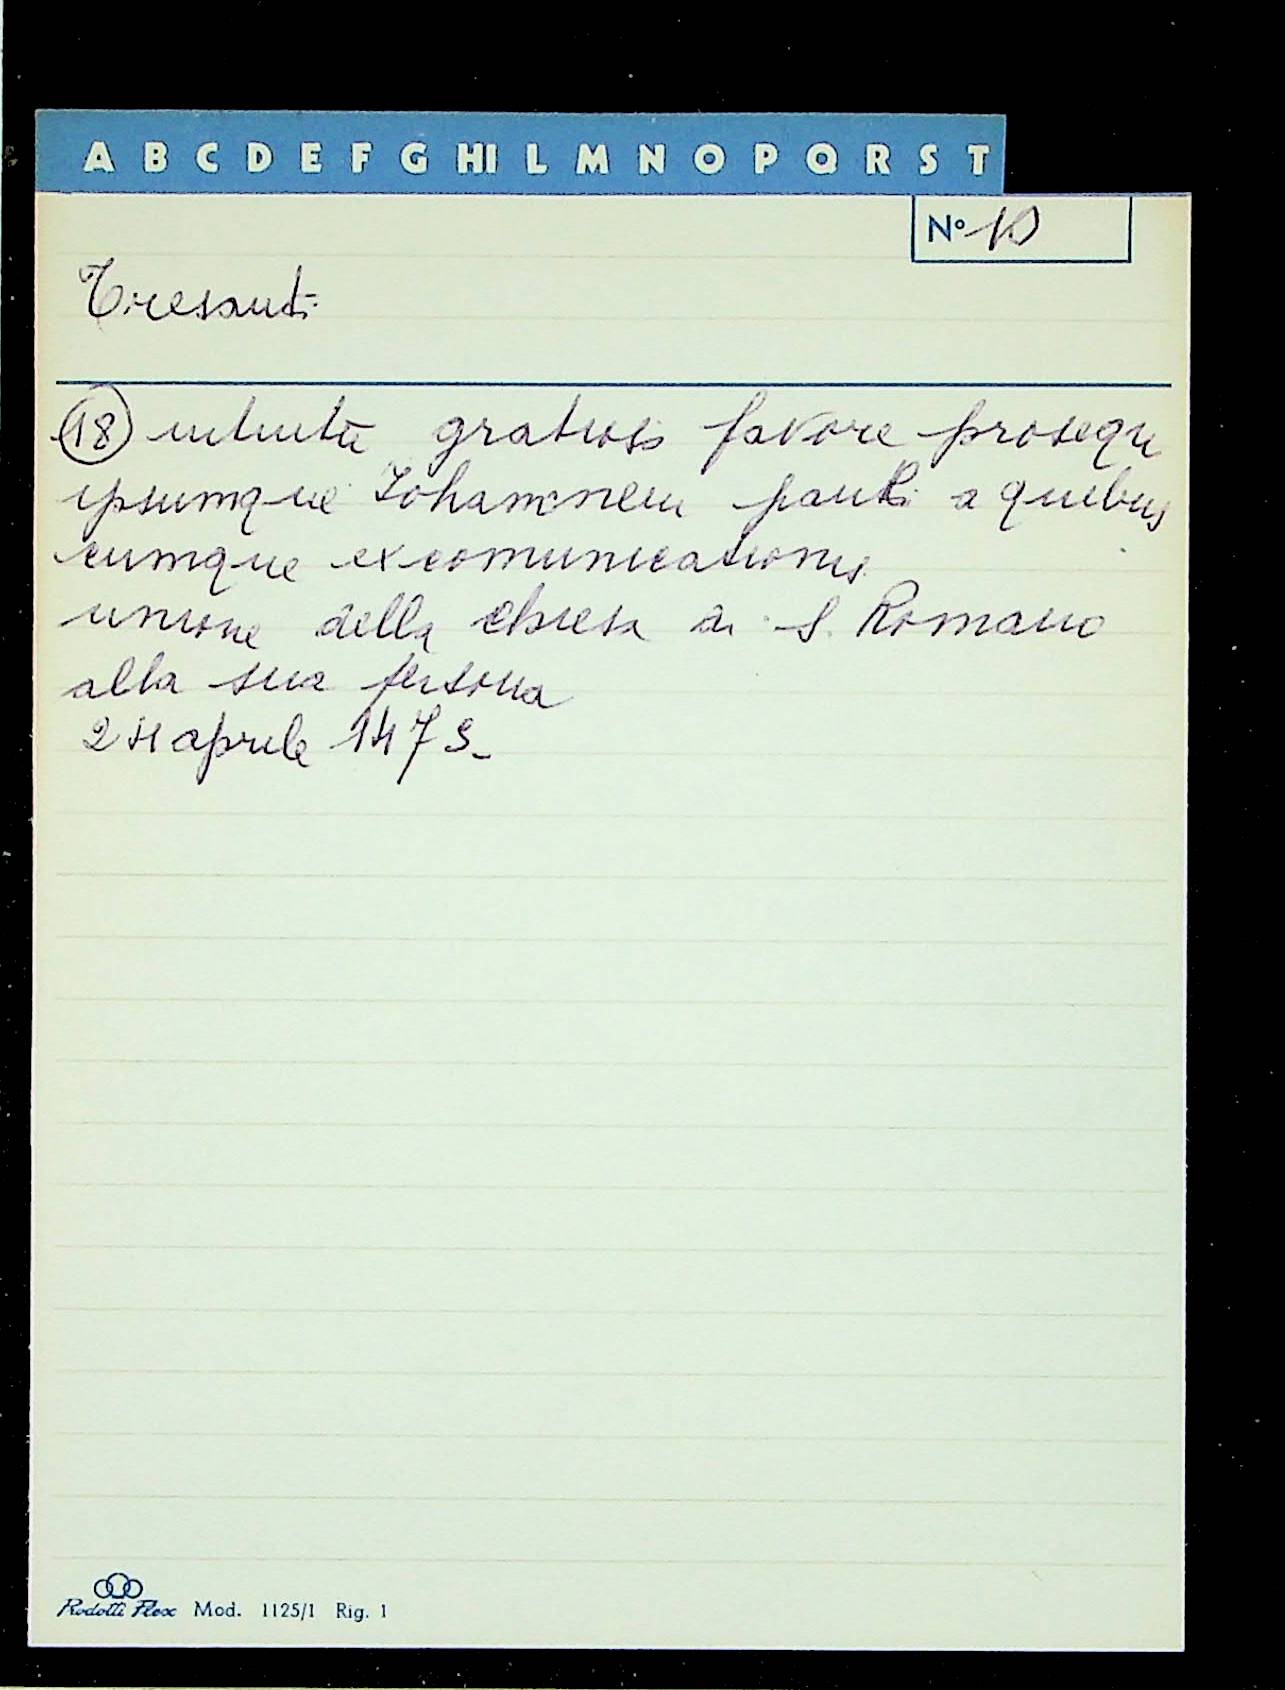 A B C D E F G HI L M N O P Q R S T
N° 10
Tresanti
18 intuitu gratioso favore prosequi
ipsumque Iohannem pauli a quibus
cumque excomunicationis
unione della chiesa di S. Romano
alla sua persona
24 aprile 1473
Rodotti Flex Mod. 1125/1 Rig. 1